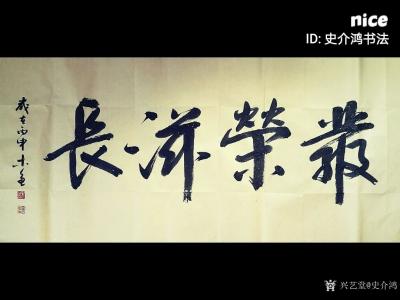 nice
ID: 史介鸿书法
發榮滋長
歲在丙申
兴艺堂@史介鸿